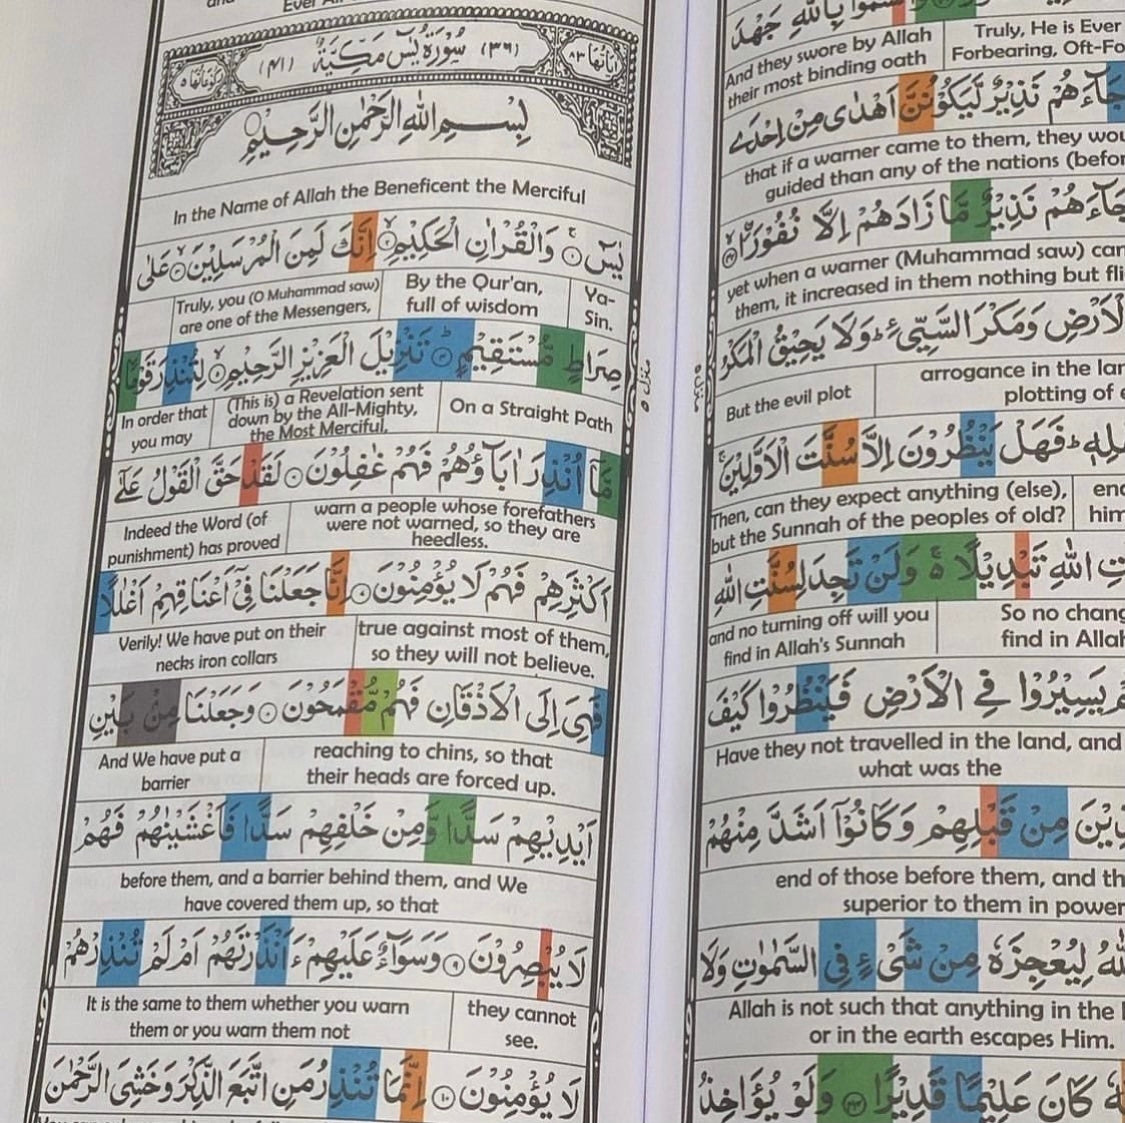 وَاَقْسَمُوْا بِاللّٰهِ جَهْدَ
Truly, He is Ever
Forbearing, Oft-Fo
And they swore by Allah
their most binding oath
جَآءَهُمْ نَذِيْرٌ لَّيَكُوْنُنَّ اَهْدٰى مِنْ اِحْدَى
that if a warner came to them, they wou
guided than any of the nations (befor
جَآءَهُمْ نَذِيْرٌ مَّا زَادَهُمْ اِلَّا نُفُوْرًا ۙ۝۴۲
yet when a warner (Muhammad saw) cam
them, it increased in them nothing but fli
الْاَرْضِ وَمَكْرَ السَّيِّئِ ؕ وَلَا يَحِيْقُ الْمَكْرُ
arrogance in the lan
plotting of e
But the evil plot
فَهَلْ يَنْظُرُوْنَ اِلَّا سُنَّتَ الْاَوَّلِيْنَ ۚ
enc
him
Then, can they expect anything (else),
but the Sunnah of the peoples of old?
اللّٰهِ تَبْدِيْلًا ۚ۬ وَلَنْ تَجِدَ لِسُنَّتِ اللّٰهِ
So no chang
find in Allah
and no turning off will you
find in Allah's Sunnah
يَسِيْرُوْا فِى الْاَرْضِ فَيَنْظُرُوْا كَيْفَ
Have they not travelled in the land, and
what was the
مِنْ قَبْلِهِمْ وَكَانُوْٓا اَشَدَّ مِنْهُمْ
end of those before them, and th
superior to them in power
لِيُعْجِزَهٗ مِنْ شَىْءٍ فِى السَّمٰوٰتِ وَلَا
Allah is not such that anything in the
or in the earth escapes Him.
كَانَ عَلِيْمًا قَدِيْرًا ۝۴۴ وَلَوْ يُؤَاخِذُ
منزل ۵
اٰيَاتُهَا ۸۳ (۳۶) سُوْرَةُ يٰسٓ مَكِّيَّةٌ (۴۱) رُكُوْعَاتُهَا ۵
بِسْمِ اللّٰهِ الرَّحْمٰنِ الرَّحِيْمِ
In the Name of Allah the Beneficent the Merciful
يٰسٓ ۚ۝۱ وَالْقُرْاٰنِ الْحَكِيْمِ ۙ۝۲ اِنَّكَ لَمِنَ الْمُرْسَلِيْنَ ۙ۝۳ عَلٰى
Ya-
Sin.
By the Qur'an,
full of wisdom
Truly, you (O Muhammad saw)
are one of the Messengers,
صِرَاطٍ مُّسْتَقِيْمٍ ؕ۝۴ تَنْزِيْلَ الْعَزِيْزِ الرَّحِيْمِ ۙ۝۵ لِتُنْذِرَ قَوْمًا
On a Straight Path
(This is) a Revelation sent
down by the All-Mighty,
the Most Merciful,
In order that
you may
مَّآ اُنْذِرَ اٰبَآؤُهُمْ فَهُمْ غٰفِلُوْنَ ۝۶ لَقَدْ حَقَّ الْقَوْلُ عَلٰٓى
warn a people whose forefathers
were not warned, so they are
heedless.
Indeed the Word (of
punishment) has proved
اَكْثَرِهِمْ فَهُمْ لَا يُؤْمِنُوْنَ ۝۷ اِنَّا جَعَلْنَا فِىْٓ اَعْنَاقِهِمْ اَغْلٰلًا
true against most of them,
so they will not believe.
Verily! We have put on their
necks iron collars
فَهِىَ اِلَى الْاَذْقَانِ فَهُمْ مُّقْمَحُوْنَ ۝۸ وَجَعَلْنَا مِنْۢ بَيْنِ
reaching to chins, so that
their heads are forced up.
And We have put a
barrier
اَيْدِيْهِمْ سَدًّا وَّمِنْ خَلْفِهِمْ سَدًّا فَاَغْشَيْنٰهُمْ فَهُمْ
before them, and a barrier behind them, and We
have covered them up, so that
لَا يُبْصِرُوْنَ ۝۹ وَسَوَآءٌ عَلَيْهِمْ ءَاَنْذَرْتَهُمْ اَمْ لَمْ تُنْذِرْهُمْ
they cannot
see.
It is the same to them whether you warn
them or you warn them not
لَا يُؤْمِنُوْنَ ۝۱۰ اِنَّمَا تُنْذِرُ مَنِ اتَّبَعَ الذِّكْرَ وَخَشِىَ الرَّحْمٰنَ